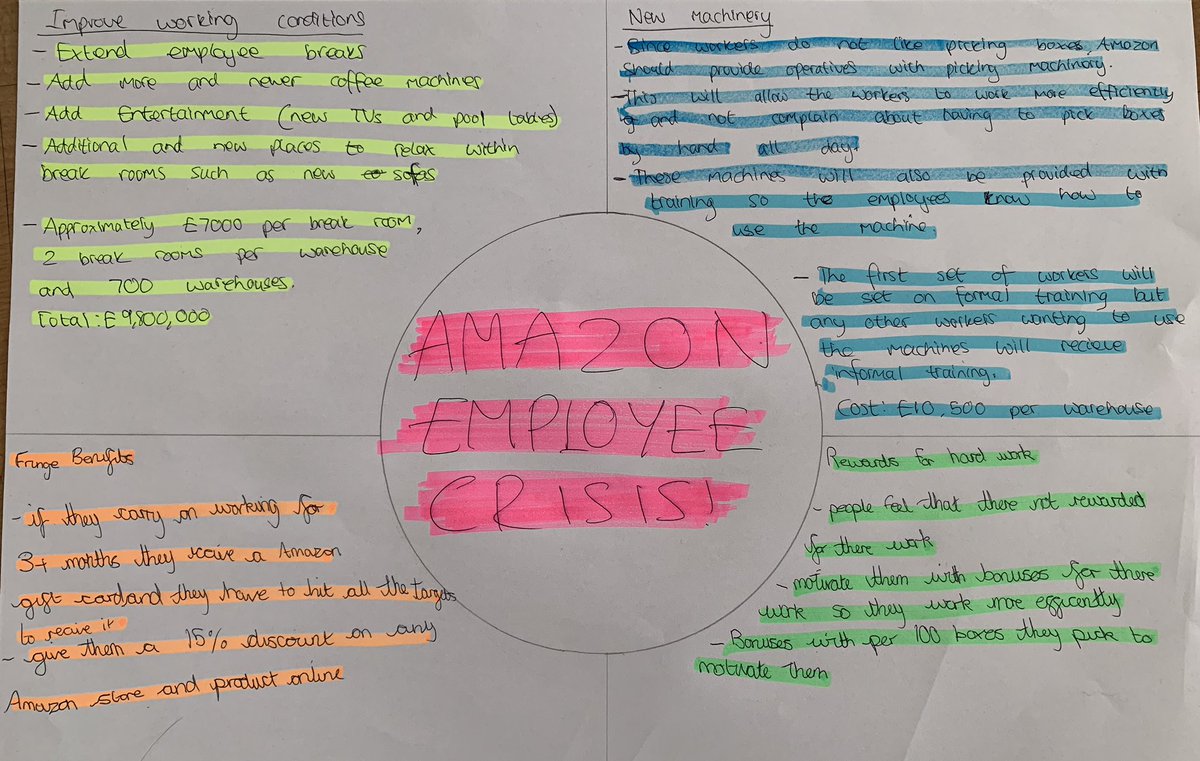 Improve working conditions
- Extend employee breaks
- Add more and newer coffee machines
- Add Entertainment (new TVs and pool tables)
- Additional and new places to relax within
break rooms such as new sofas
- Approximately £7000 per break room,
2 break rooms per warehouse
and 700 warehouses.
Total: £9,800,000
New Machinery
- Since workers do not like picking boxes, Amazon
should provide operatives with picking machinery.
- This will allow the workers to work more efficiently
and not complain about having to pick boxes
by hand all day.
- These machines will also be provided with
training so the employees know how to
use the machine.
- The first set of workers will
be set on formal training but
any other workers wanting to use
the machines will recieve
informal training.
Cost: £10,500 per warehouse
AMAZON
EMPLOYEE
CRISIS!
Fringe Benefits
- if they carry on working for
3+ months they receive a Amazon
gift card and they have to hit all the targets
to recive it
- give them a 15% discount on any
Amazon store and product online
Rewards for hard work
- people feel that there not rewarded
for there work
- motivate them with bonuses for there
work so they work more efficently
- Bonuses with per 100 boxes they pick to
motivate them